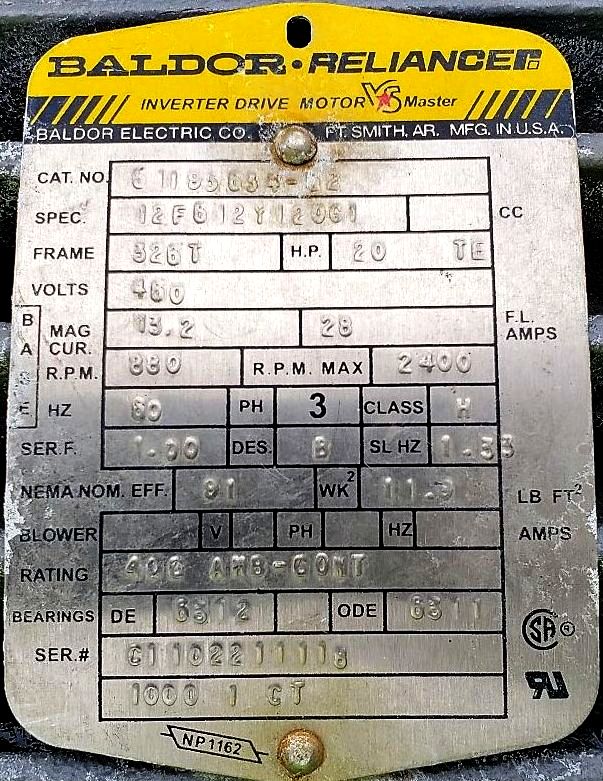 BALDOR • RELIANCE
INVERTER DRIVE MOTOR VS Master
BALDOR ELECTRIC CO. FT. SMITH, AR. MFG. IN U.S.A.
CAT. NO.
SPEC. 12F612Y129G1 CC
FRAME 326T H.P. 20 TE
VOLTS 460
BASE
MAG CUR. 13.2 28 F.L. AMPS
R.P.M. 880 R.P.M. MAX 2400
HZ 60 PH 3 CLASS H
SER.F. 1.00 DES. B SL HZ 1.33
NEMA NOM. EFF. 91 WK² 11.9 LB FT²
BLOWER V PH HZ AMPS
RATING 40C AMB-CONT
BEARINGS DE 6312 ODE 6311
SER.# C1102211118
1000 1 CT
NP1162